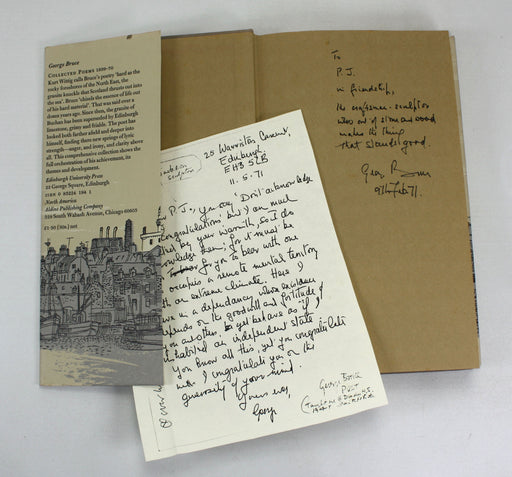 George Bruce
COLLECTED POEMS 1939-70
Kurt Wittig calls Bruce's poetry 'hard as the
rocky foreshores of the North East, the
granite knuckle that Scotland thrusts out into
the sea'. Bruce 'chisels the essence of life out
of his hard material'. That was said over a
dozen years ago. Since then, the granite of
Buchan has been superseded by Edinburgh
limestone, grimy and friable. The poet has
looked both further afield and deeper into
himself, finding there new springs of lyric
strength—anger, and irony, and clarity above
all. This comprehensive collection shows the
full orchestration of his achievement, its
themes and development.
Edinburgh University Press
22 George Square, Edinburgh
ISBN 0 85224 188 1
North America
Aldine Publishing Company
529 South Wabash Avenue, Chicago 60605
£1.50 [30s.] net
To
P.J.
in friendship,
the craftsman-sculptor
who out of stone and wood
makes the thing
that stands good.
George Bruce
71.
25 Warriston Crescent,
Edinburgh
EH3 5LB
11. 5. 71
sculptor
Dear P.J., you say 'Don't acknowledge
congratulations' and I am much
by your warmth, so I do
acknowledge them, for it must be
for you to bear with one
occupies a remote mental territory
with an extreme climate. Here I
live in a dependancy whose existence
depends on the goodwill and fortitude of
you and others, & yet behave as if I
inhabited an independent state.
You know all this, yet you congratulate
with. I congratulate you on the
generosity of your mind.
Yours ever,
George
George Bruce
Poet